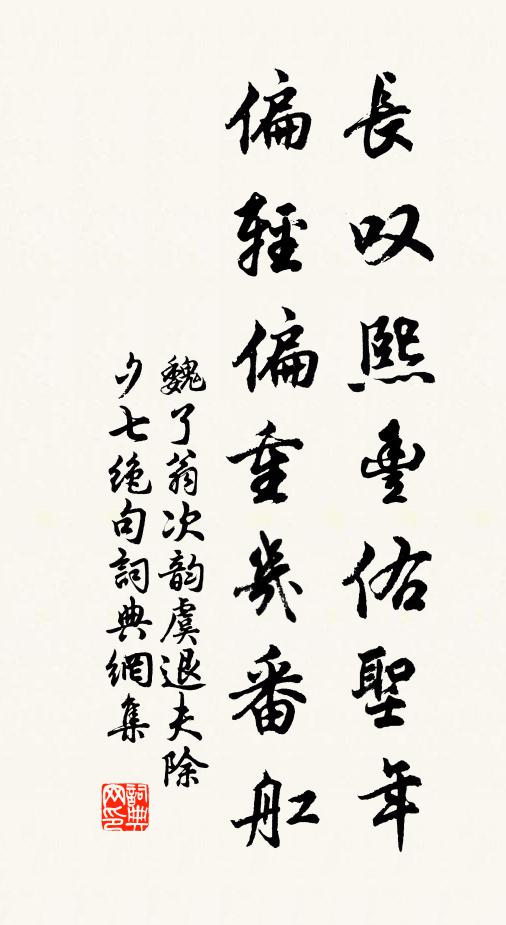 長叹熙豊佑聖年
偏輕偏重幾番舡
魏了翁次韵虞退夫除
夕七绝句詞典網集
詞典网印